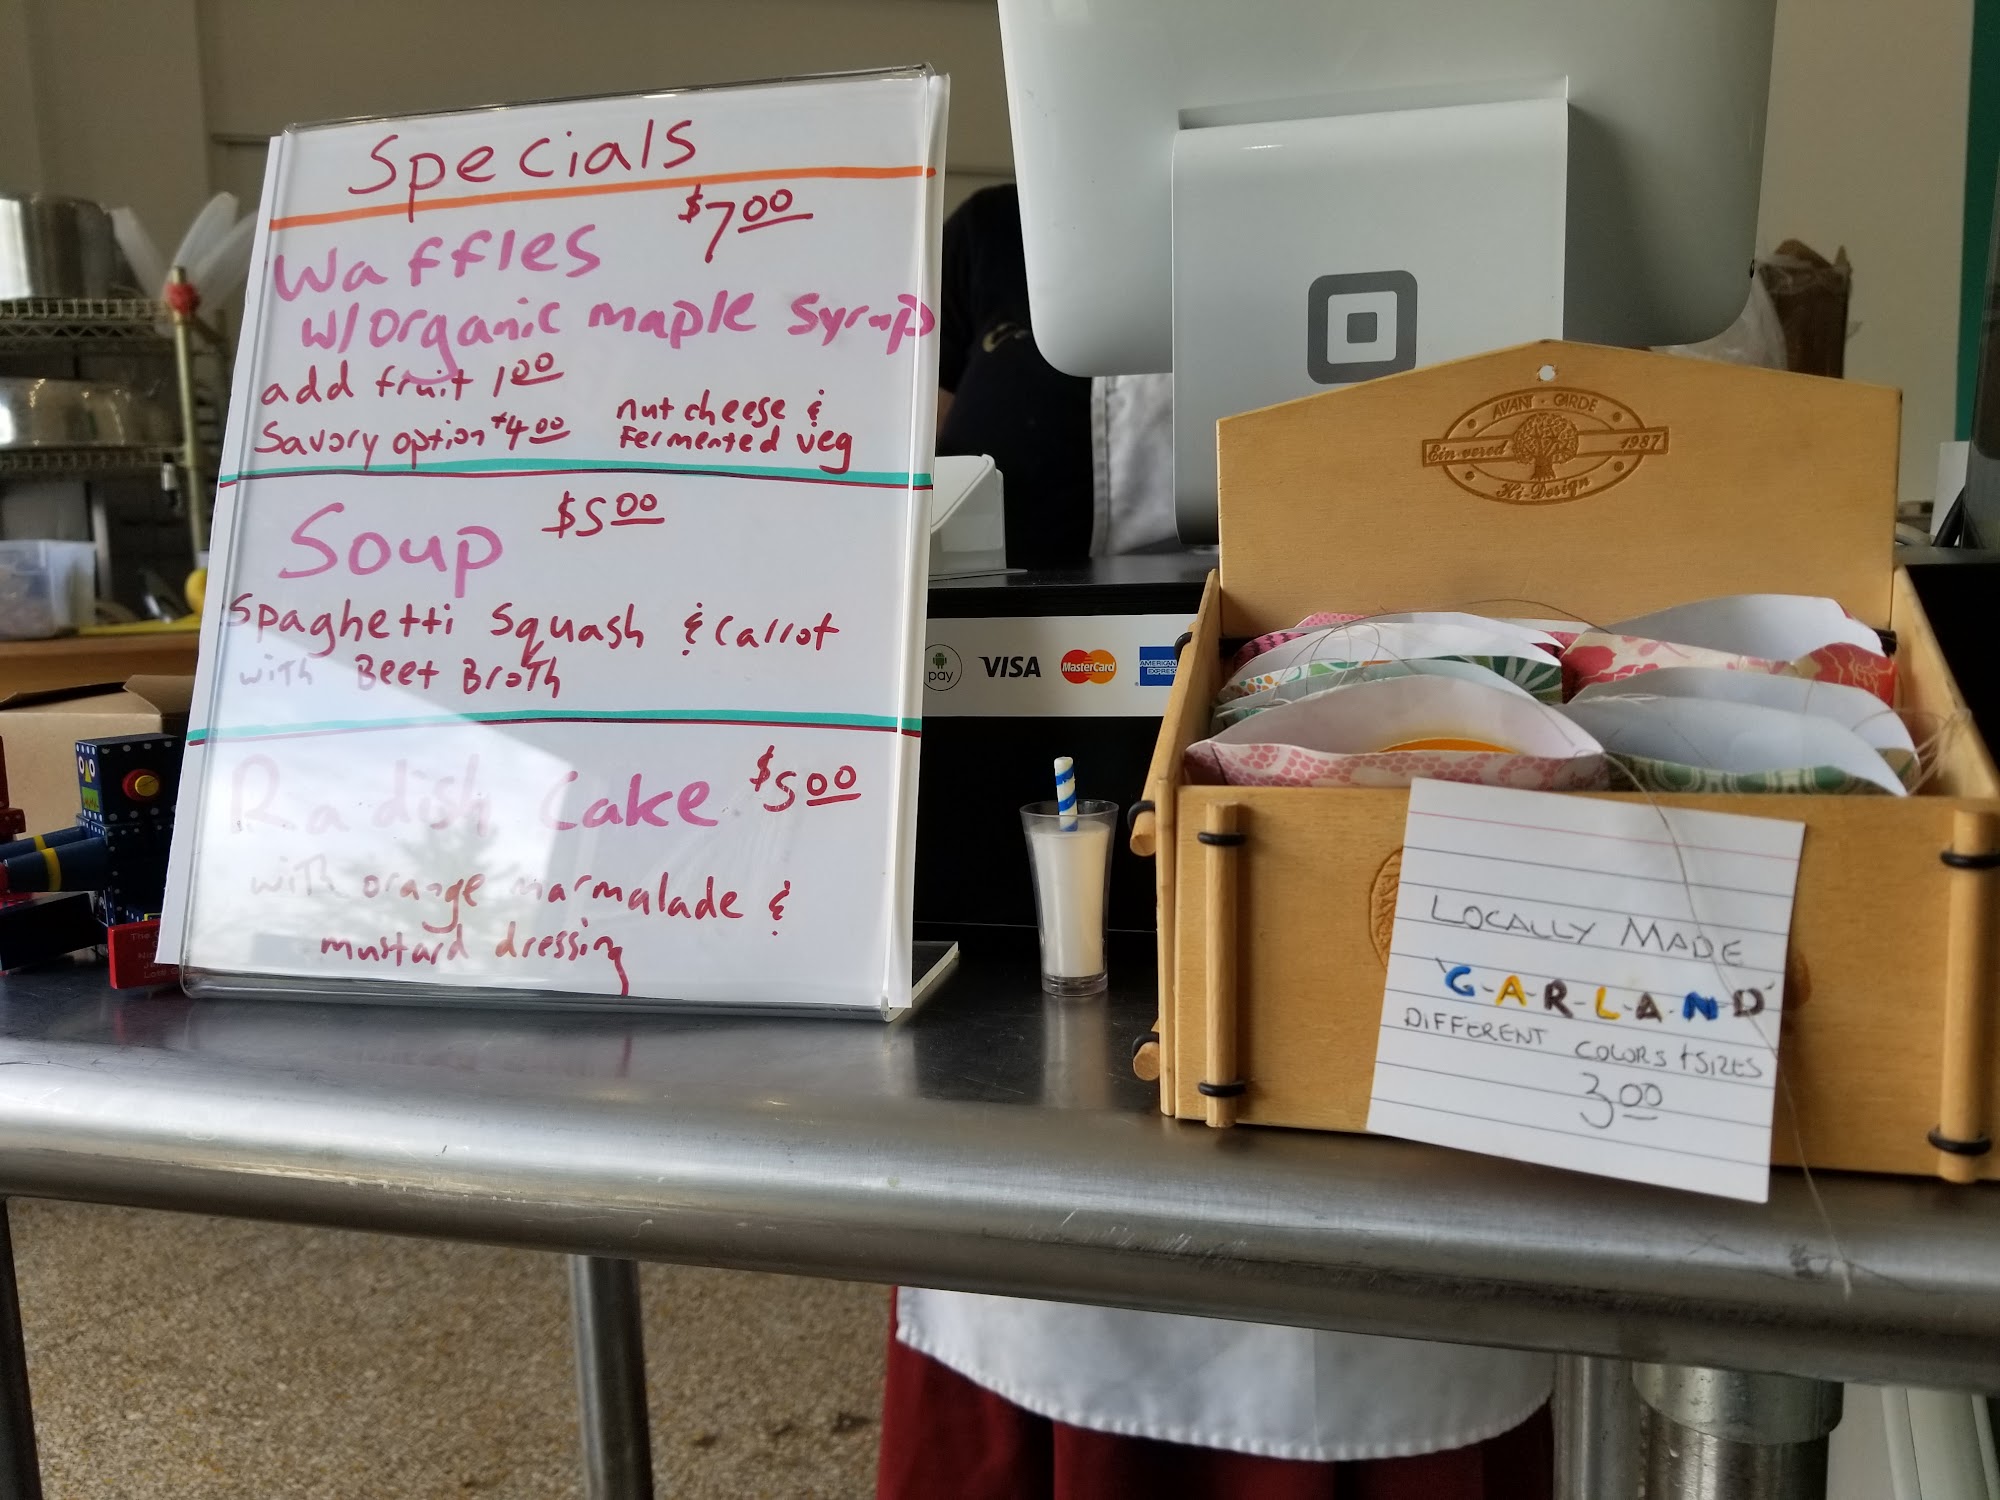 Specials
Waffles $7.00
w/organic maple syrup
add fruit 1.00
Savory option +4.00 nut cheese &
Fermented veg
Soup $5.00
Spaghetti Squash & carrot
with Beet Broth
Radish Cake $5.00
with orange marmalade &
mustard dressing
pay VISA MasterCard AMERICAN
EXPRESS
AVANT · GARDE
Ein·vered 1987
Hi-Design
LOCALLY MADE
'G-A-R-L-A-N-D'
DIFFERENT COLORS + SIZES
3.00